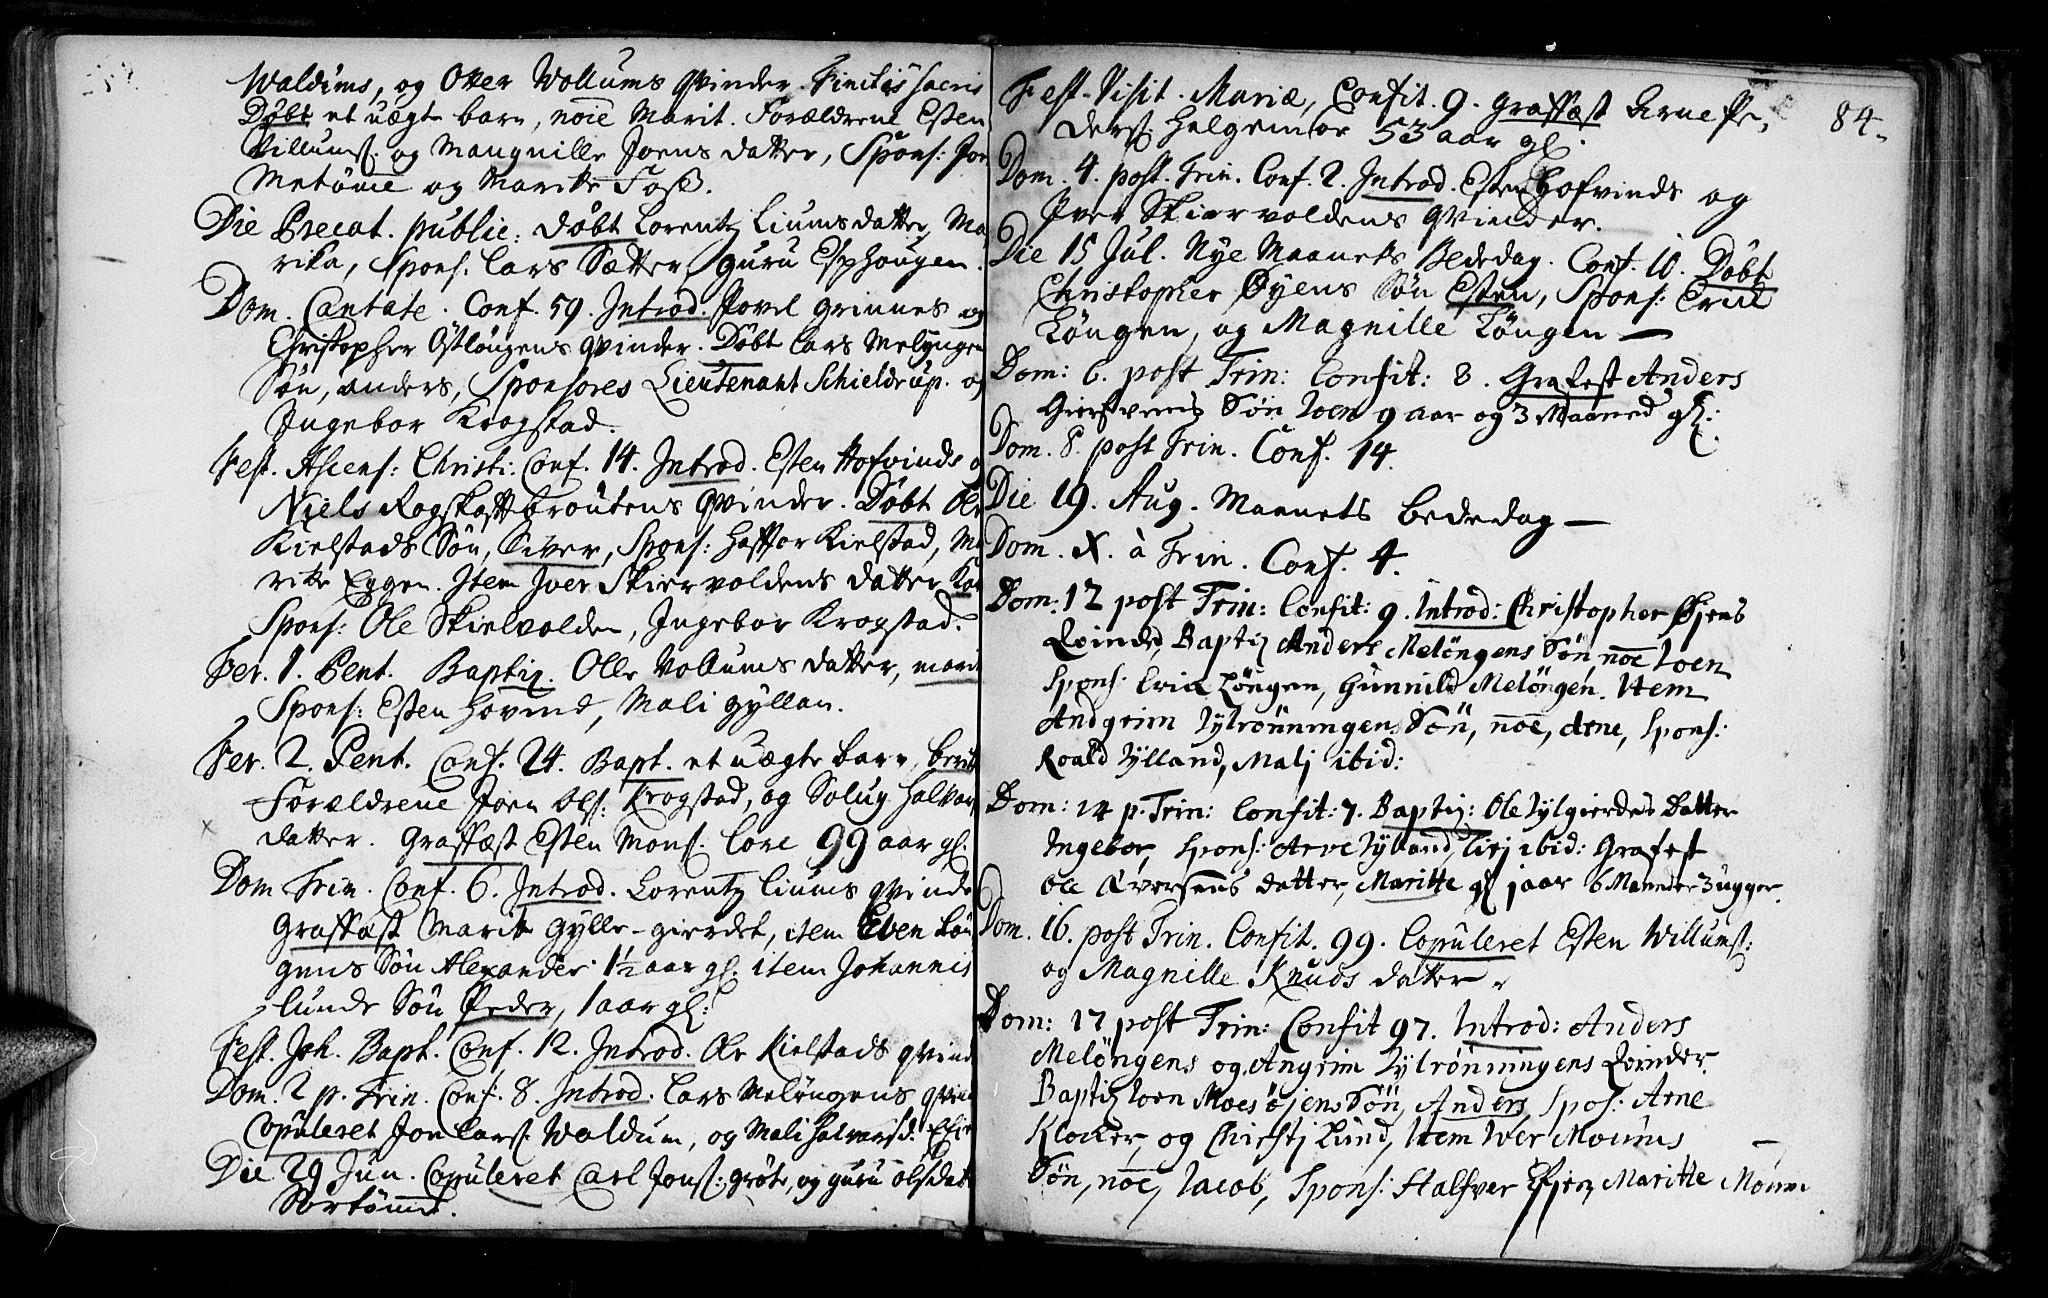 Waldums, og Over Vollums Qvinder. Finitis sacris
Døbt et uægte barn, noie Marit. Forældrene Esten
Villums: og Mangnille Joens datter, Spons: Jon
Metømme og Marite Foss.
Die Precat. public: døbt Lorentz Liums datter, Ma
rika, Spons. Lars Sætter, guru Esphougen.
Dom. Cantate. Conf. 59. Introd. Povel Grinnes og
Christopher Østløngens Qvinder. Døbt Lars Meløngens
Søn, anders, Sponsores Lieutenant Schieldrup. og
Ingebor Krogstad.
Fest. Ascens: Christi: Conf. 14. Introd. Esten Hofvinds o
Niels Rogskaftbroutens Qvinder. Døbt Ole
Kielstads Søn, Siver, Spons: Haffor Kielstad, Ma
rite Eggen. Item Iver Skiervoldens datter Kar
Spons: Ole Skielvolden, Ingebor Krogstad.
Fer. 1. Pent. Baptiz. Olle Vollums datter, marit
Spons: Esten Hovind, Mali gyllan.
Fer. 2. Pent. Conf. 24. Bapt. et uægte barn, berit
Forældrene Joen Ols: Krogstad, og Solug Halvor
datter. Graffæst Esten Mons. Lore 99 aar gl.
Dom Trin. Conf. 6. Introd. Lorentz Liums qvinde
Graffæst Marit Gylle-gierdet, item Even Løn
gens Søn Alexander 1½ aar gl. item Johannis
lunds Søn Peder, 1 aar gl:
Fest. Joh. Bapt. Conf. 12. Introd. Ole Kielstads qvind
Dom. 2 p. Trin. Conf. 8. Introd. Lars Meløngens qvin
Copuleret Jon Lars: Waldum, og Mali Halvorsd.
Die 29 Jun. Copuleret Carl Jons: grøte, og guru olsdat
Sortømme.
84.
Fest. Visit. Mariæ, Confit. 9. graffæst Arne Pe,
ders: Halgemoe 53 aar gl.
Dom. 4. post. Trin. Conf. 2. Introd. Esten Hofvinds og
Iver Skiervoldens qvinder.
Die 15 Jul. Nye Maanets Bededag. Conf. 10. Døbt
Christopher Øyens Søn Esten, Spons: Erik
Løngen, og Magnille Løngen —
Dom: 6. post Trin: Confit: 8. Grafest Anders
Søn Joen 9 aar og 3 Maaned gl:
Dom. 8. post Trin. Conf. 14.
Die 19. Aug. Maanets bededag —
Dom. X. à Trin. Conf. 4.
Dom: 12 post Trin: Confit: 9. Introd: Christopher Øjens
Qvinde, Baptiz Anders Meløngens Søn, noe Joen
Spons: Erich Løngen, Gunnild Meløngen. Item
Andgrim Jylrønningens Søn, noe, Arne, Spons:
Roald Jylland, Malj ibid:
Dom: 14 p. Trin: Confit: 7. Baptiz: Ole Jylgierdes Datter
Ingebor, Spons: Arve Jylland, Sirj ibid: Grafest
ole Qversens datter, Maritte gl jaar 6 Maaneder 3 ugger.
Dom. 16. post Trin. Confit. 99. Copuleret Esten Willums:
og Magnille Knuds datter.
Dom: 17 post Trin: Confit 97. Introd: Anders
Meløngens og Angrim Jylrønningens Qvinder
Baptiz Joen Moesøjens Søn, Anders, Spos: Arne
Klocker, og Christj Lund, Item Iver Moums —
Søn, noe, Jacob, Spons: Halfver Maritte Moum